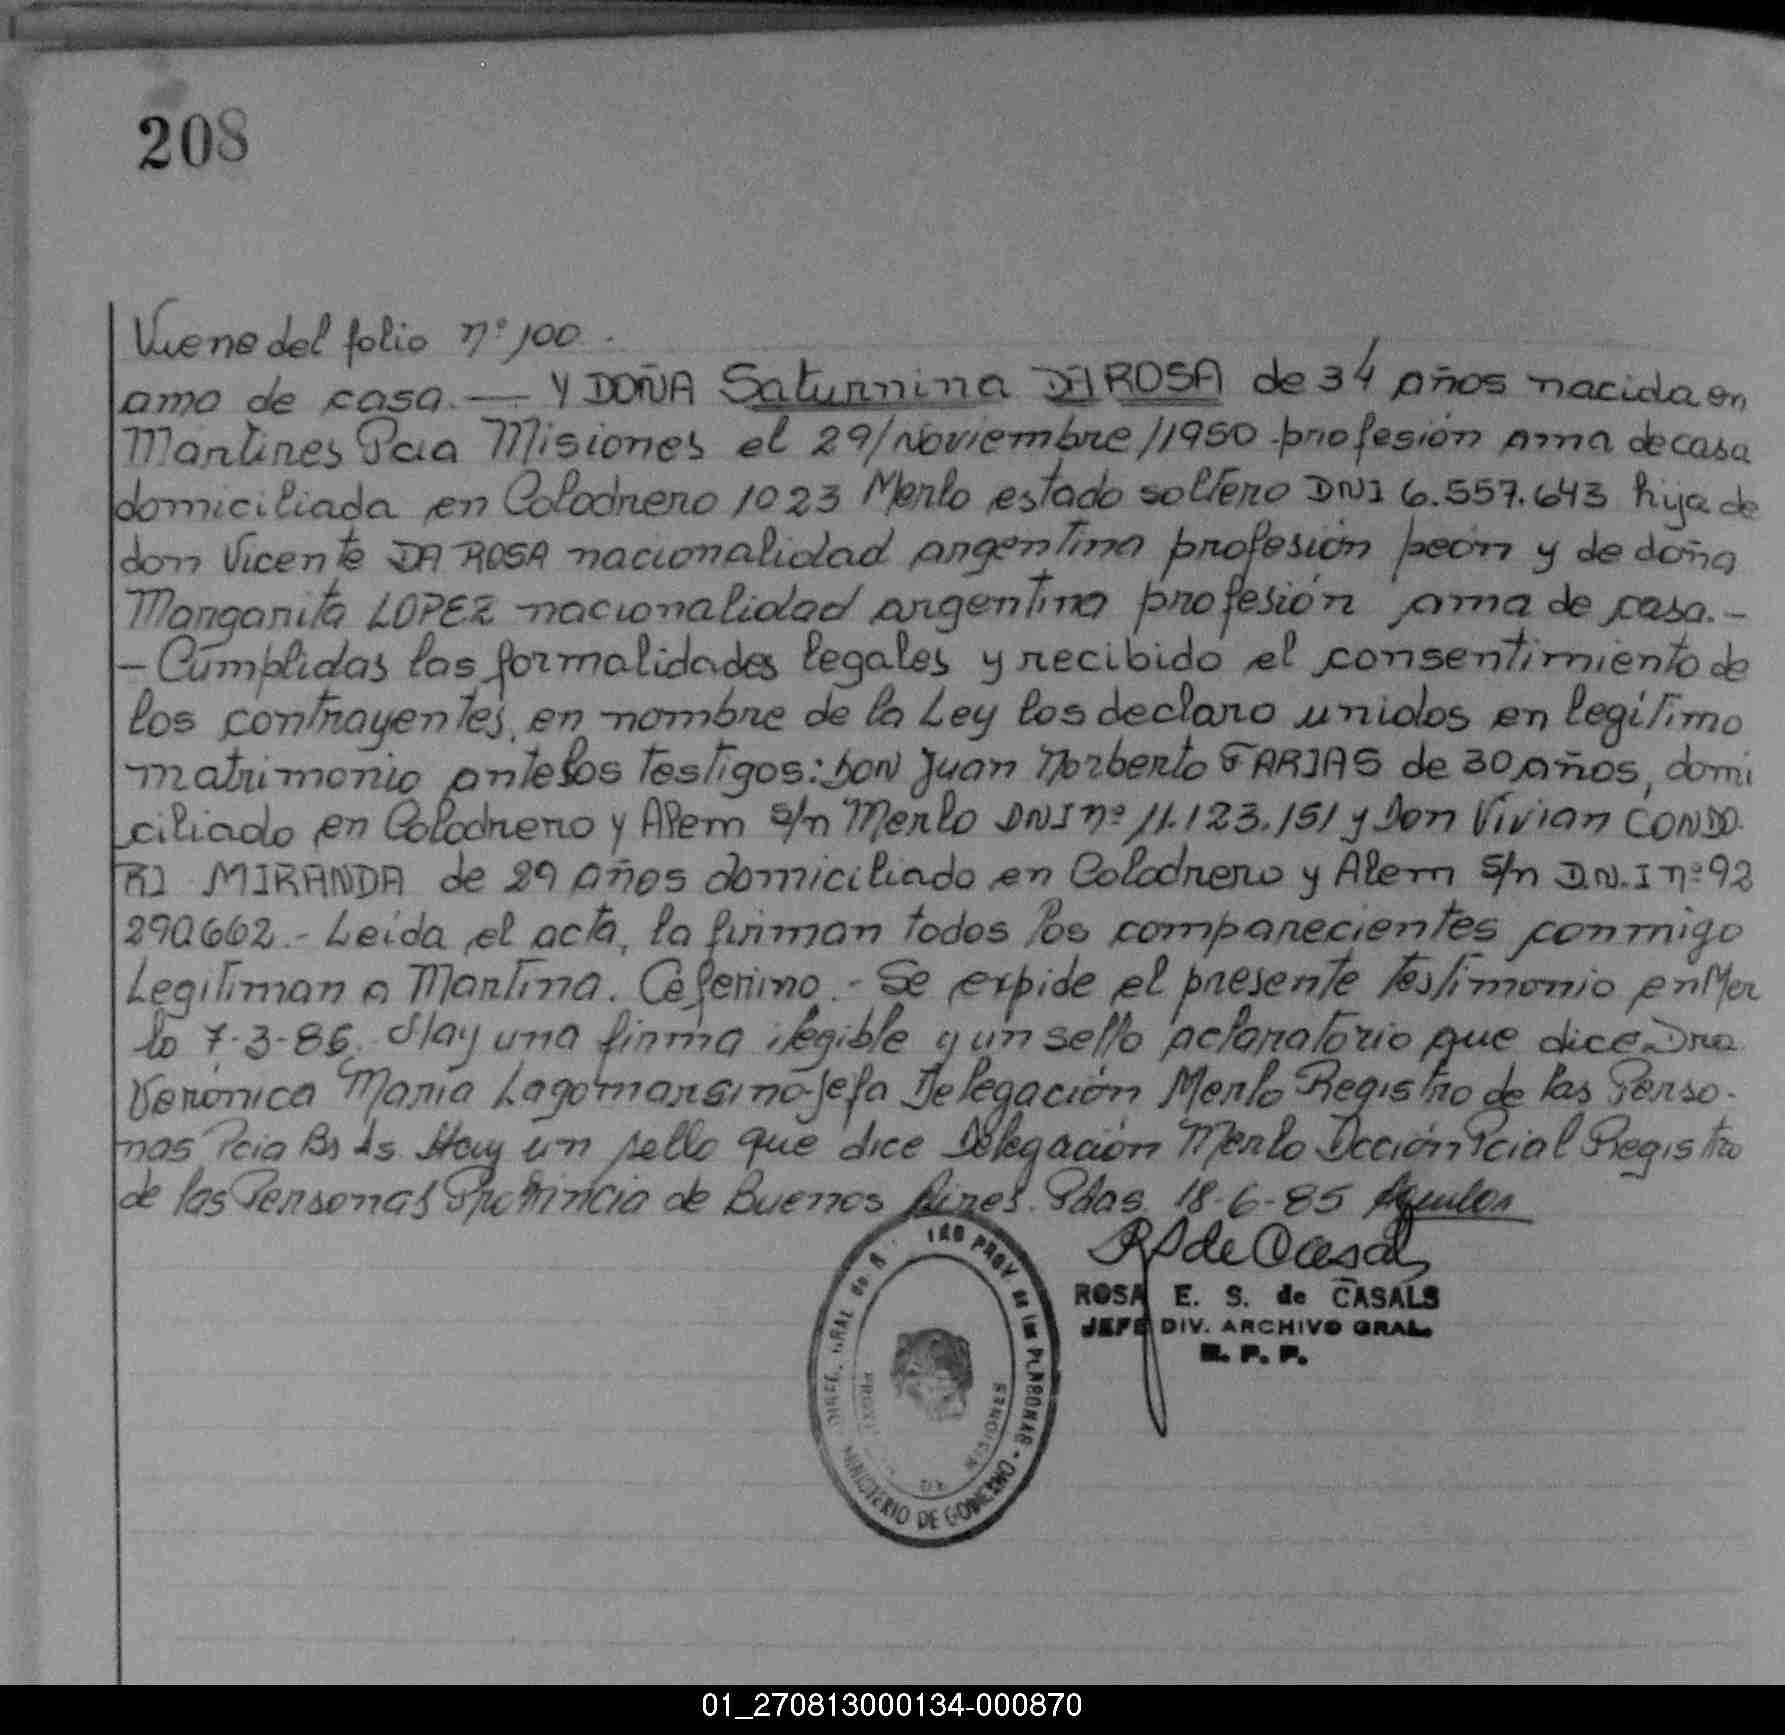 208
Viene del folio nº 100.
ama de casa. — Y DOÑA Saturnina DA ROSA de 34 años nacida en
Martires Pcia Misiones el 29/Noviembre/1950 profesión ama de casa
domiciliada en Colodrero 1023 Merlo estado soltero DNI 6.557.643 hija de
don Vicente DA ROSA nacionalidad argentina profesión peón y de doña
Margarita LOPEZ nacionalidad argentina profesión ama de casa.-
- Cumplidas las formalidades legales y recibido el consentimiento de
los contrayentes, en nombre de la Ley los declaro unidos en legítimo
matrimonio ante los testigos: DON Juan Norberto FARIAS de 30 años, domi
ciliado en Colodrero y Alem s/n Merlo DNI nº 11.123.151 y Don Vivian CONDO-
RI MIRANDA de 29 años domiciliado en Colodrero y Alem S/n D.N.I nº 92
290.662.- Leída el acta, la firman todos los comparecientes conmigo
Legitiman a Martina. Ceferino.- Se expide el presente testimonio en Mer
lo 7-3-86. Hay una firma ilegible y un sello aclaratorio que dice Dra
Verónica María Lagomarsino-Jefa Delegación Merlo Registro de las Perso-
nas Pcia Bs As. Hay un sello que dice Delegación Merlo Dcción Pcial Registro
de las Personas Provincia de Buenos Aires. Pdas. 18-6-85
ROSA E. S. de CASALS
JEFE DIV. ARCHIVO GRAL.
R. P. P.
MINISTERIO DE GOBIERNO
MISIONES
01_270813000134-000870